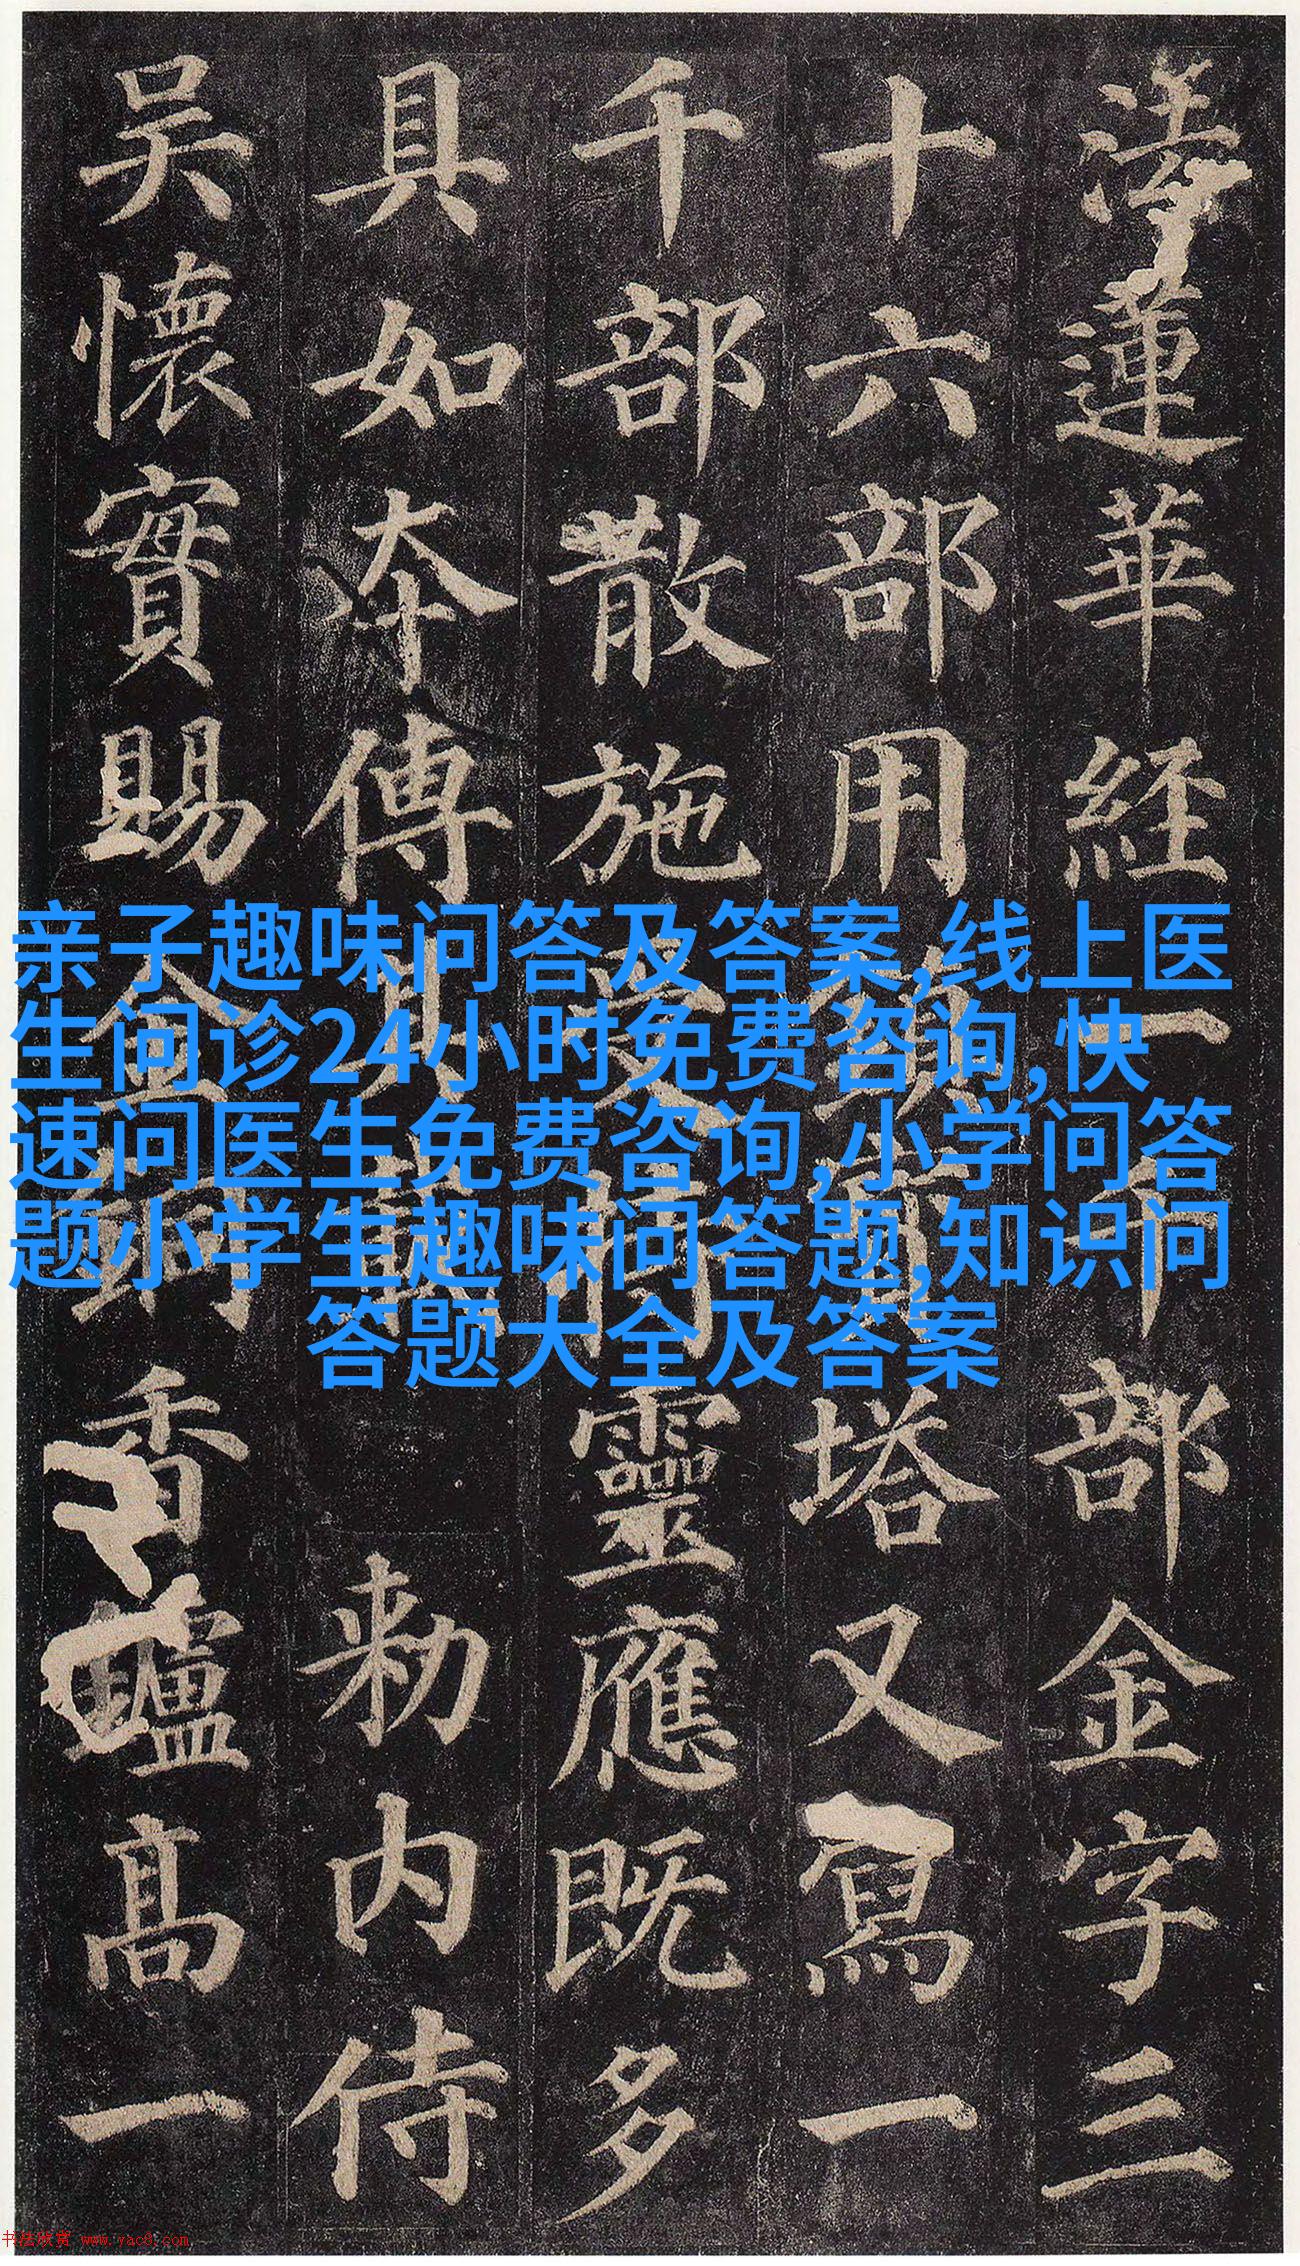 法蓮華経一千部金字三
十六部用鎮寶塔又寫一
千部散施受持靈應既多
具如夲傳其載勅内侍
吳懷實賜金銅香鑪髙一
亲子趣味问答及答案,线上医
生问诊24小时免费咨询,快
速问医生免费咨询,小学问答
题小学生趣味问答题,知识问
答题大全及答案
书法欣赏 www.yac8.com